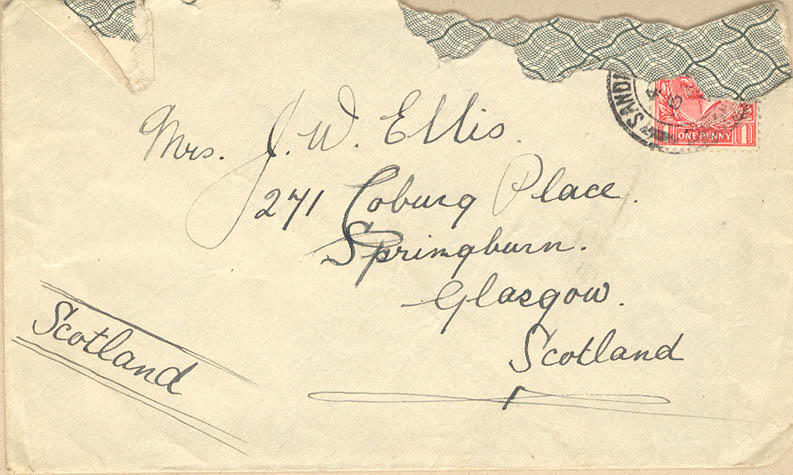 SANDI
ONE PENNY 1
Mrs. J. W. Ellis.
271 Coburg Place.
Springburn.
Glasgow.
Scotland
Scotland